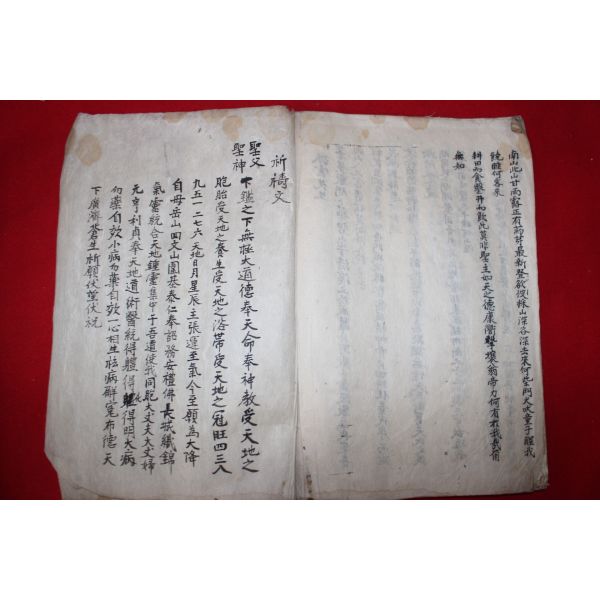 南山北山甘雨露正有葯芽最新聲欲使採山深谷深雲來何些阿犬吠童子醒我
睡何客來
耕田而食鑿井而飮此莫非聖主如天之德康衢擊壤翁帝力何有於我哉自
無知
祈禱文
聖父
聖神
下鑑之下無極大道德奉天命奉神敎受天地之
胞胎受天地之養生受天地之浴帶受天地之冠旺四三八
九五一二七六天地日月星辰主張運至氣今至願爲大降
自母岳山回文山圍基泰仁奉詔務安禮佛長城織錦
氣靈統合天地鍾靈集中于吾遣使我同胞大丈夫大丈婦
元亨利貞奉天地道術醫統得軆得軆得明大病
勿藥自效小病勿藥自效一心相生祛病解寃布德天
下廣濟蒼生祈願伏望伏祝